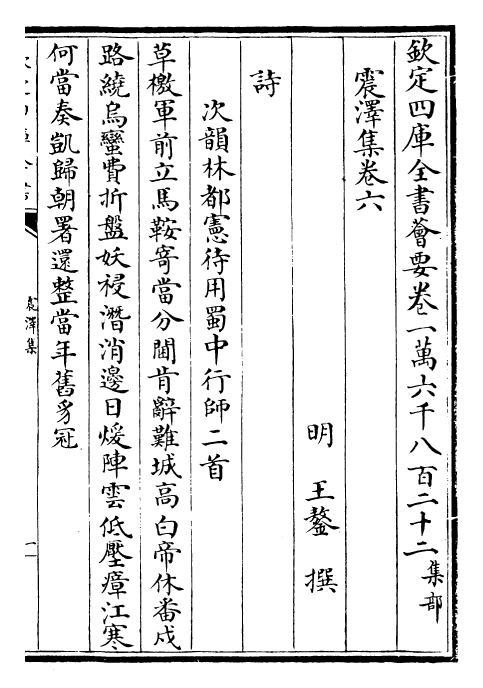 欽定四庫全書薈要卷一萬六千八百二十二集部
震澤集卷六
明王鏊撰
詩
次韻林都憲待用蜀中行師二首
草檄軍前立馬鞍寄當分閫肯辭難城高白帝休番戍
路繞烏蠻費折盤妖祲潛消邊日煖陣雲低壓瘴江寒
何當奏凱歸朝署還整當年舊豸冠
震澤集
一